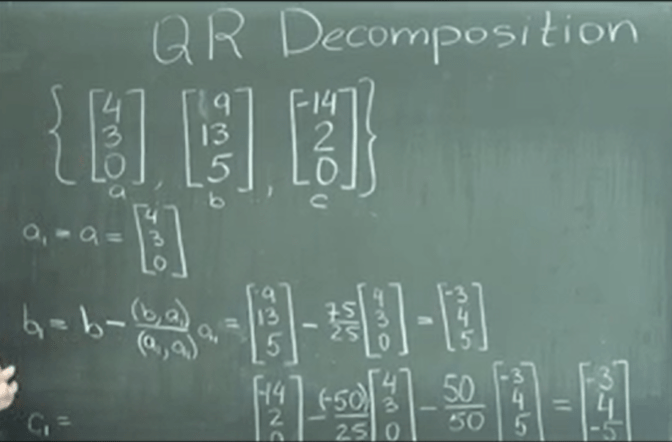 QR Decomposition
{ [4 3 0], [9 13 5], [-14 2 0] }
a b c
a₁ = a = [4 3 0]
b₁ = b - (b,a₁)/(a₁,a₁) a₁ = [9 13 5] - 75/25 [4 3 0] = [-3 4 5]
c₁ = [-14 2 0] - (-50)/25 [4 3 0] - 50/50 [-3 4 5] = [-3 4 -5]